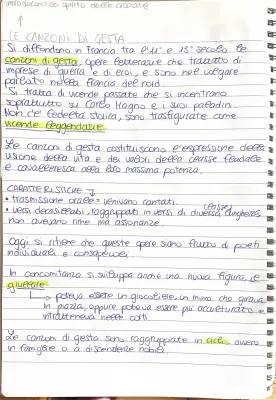 influenzano lo spirito delle crociate
LE CANZONI DI GESTA
Si diffondono in Francia tra l'11° e 13° secolo le
canzoni di gesta, opere letterarie che trattano di
imprese di guerra e di eroi, e sono nel volgare
parlato nella Francia del nord.
Si tratta di vicende passate che si incentrano
soprattutto su Carlo Magno e i suoi paladini.
Non c'è fedeltà storica, sono trasfigurate come
vicende leggendarie.
Le canzoni di gesta costituiscono l'espressione della
visione della vita e dei valori della classe feudale
e cavalleresca alla loro massima potenza.
CARATTERISTICHE
• trasmissione orale: venivano cantati.
• versi decasillabi, raggruppati in versi di diversa lunghezza
non avevano rime ma assonanze.
Oggi si ritiene che queste opere siano frutto di poeti
individuali e consapevoli.
In concomitanza si sviluppa anche una nuova figura, il
giullare
poteva essere un giocoliere, un mimo che girava
in piazza, oppure poteva essere più acculturato e
intratteneva nelle corti.
Le canzoni di gesta sono raggruppate in cicli, ovvero
in famiglie o a discendenze nobili